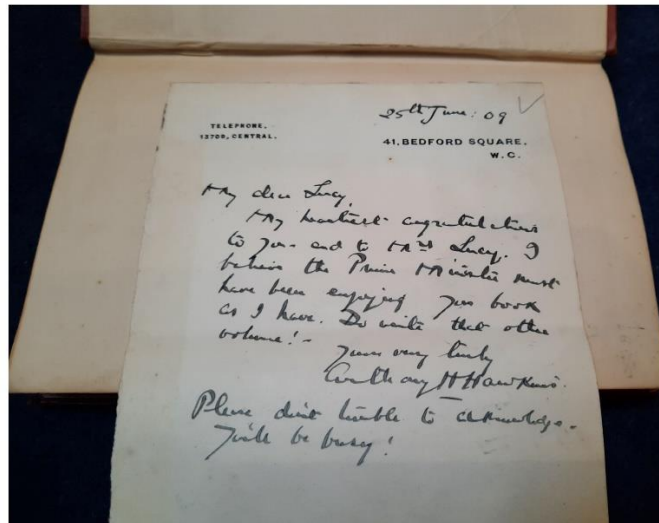 25th June: 09
TELEPHONE.
13709, CENTRAL.
41, BEDFORD SQUARE.
W. C.
My dear Lucy,
My heartiest congratulations
to you and to Mrs Lucy. I
believe the Prime Minister must
have been enjoying your book
as I have. Do write that other
volume! -
Yours very truly
Anthony H Hawkins.
Please don't trouble to acknowledge -
You'll be busy!